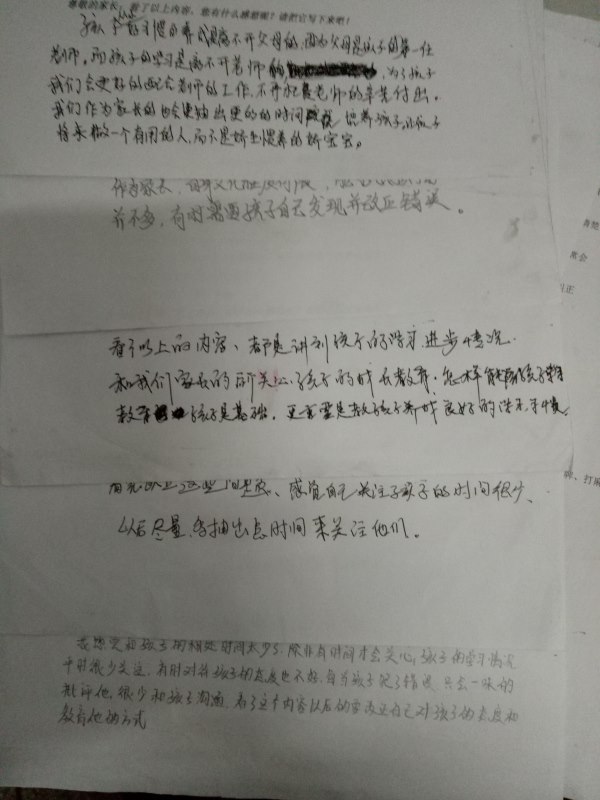 尊敬的家长，看了以上内容，您有什么感想呢？请把它写下来吧！
孩子学习习惯的养成是离不开父母的，因为父母是孩子的第一任
老师。而孩子的学习是离不开老师的，为了孩子
我们会更好的配合老师的工作，不辜负老师的辛苦付出。
我们作为家长的也会更抽出更多的时间 培养孩子，让孩子
将来做一个有用的人，而不是娇生惯养的娇宝宝。
作为家长，自身文化程度有限，
并不多，有时需要孩子自己发现并改正错误。
看了以上的内容、都是讲到孩子的学习、进步情况
和我们家长的所关心孩子的成长教育，怎样才能
教育孩子是基础，更重要是教孩子养成良好的学习习惯
看完以上这些问题、感觉自己关注子孩子的时间很少、
以后尽量多抽出点时间来关注他们。
我感觉和孩子的相处时间太少了，除非有时间才会关心，孩子的学习情况
平时很少关注，有时对待孩子的态度也不好，每当孩子犯了错误，只会一味的
批评他，很少和孩子沟通，看了这个内容以后的要改正自己对孩子的态度和
教育他的方式